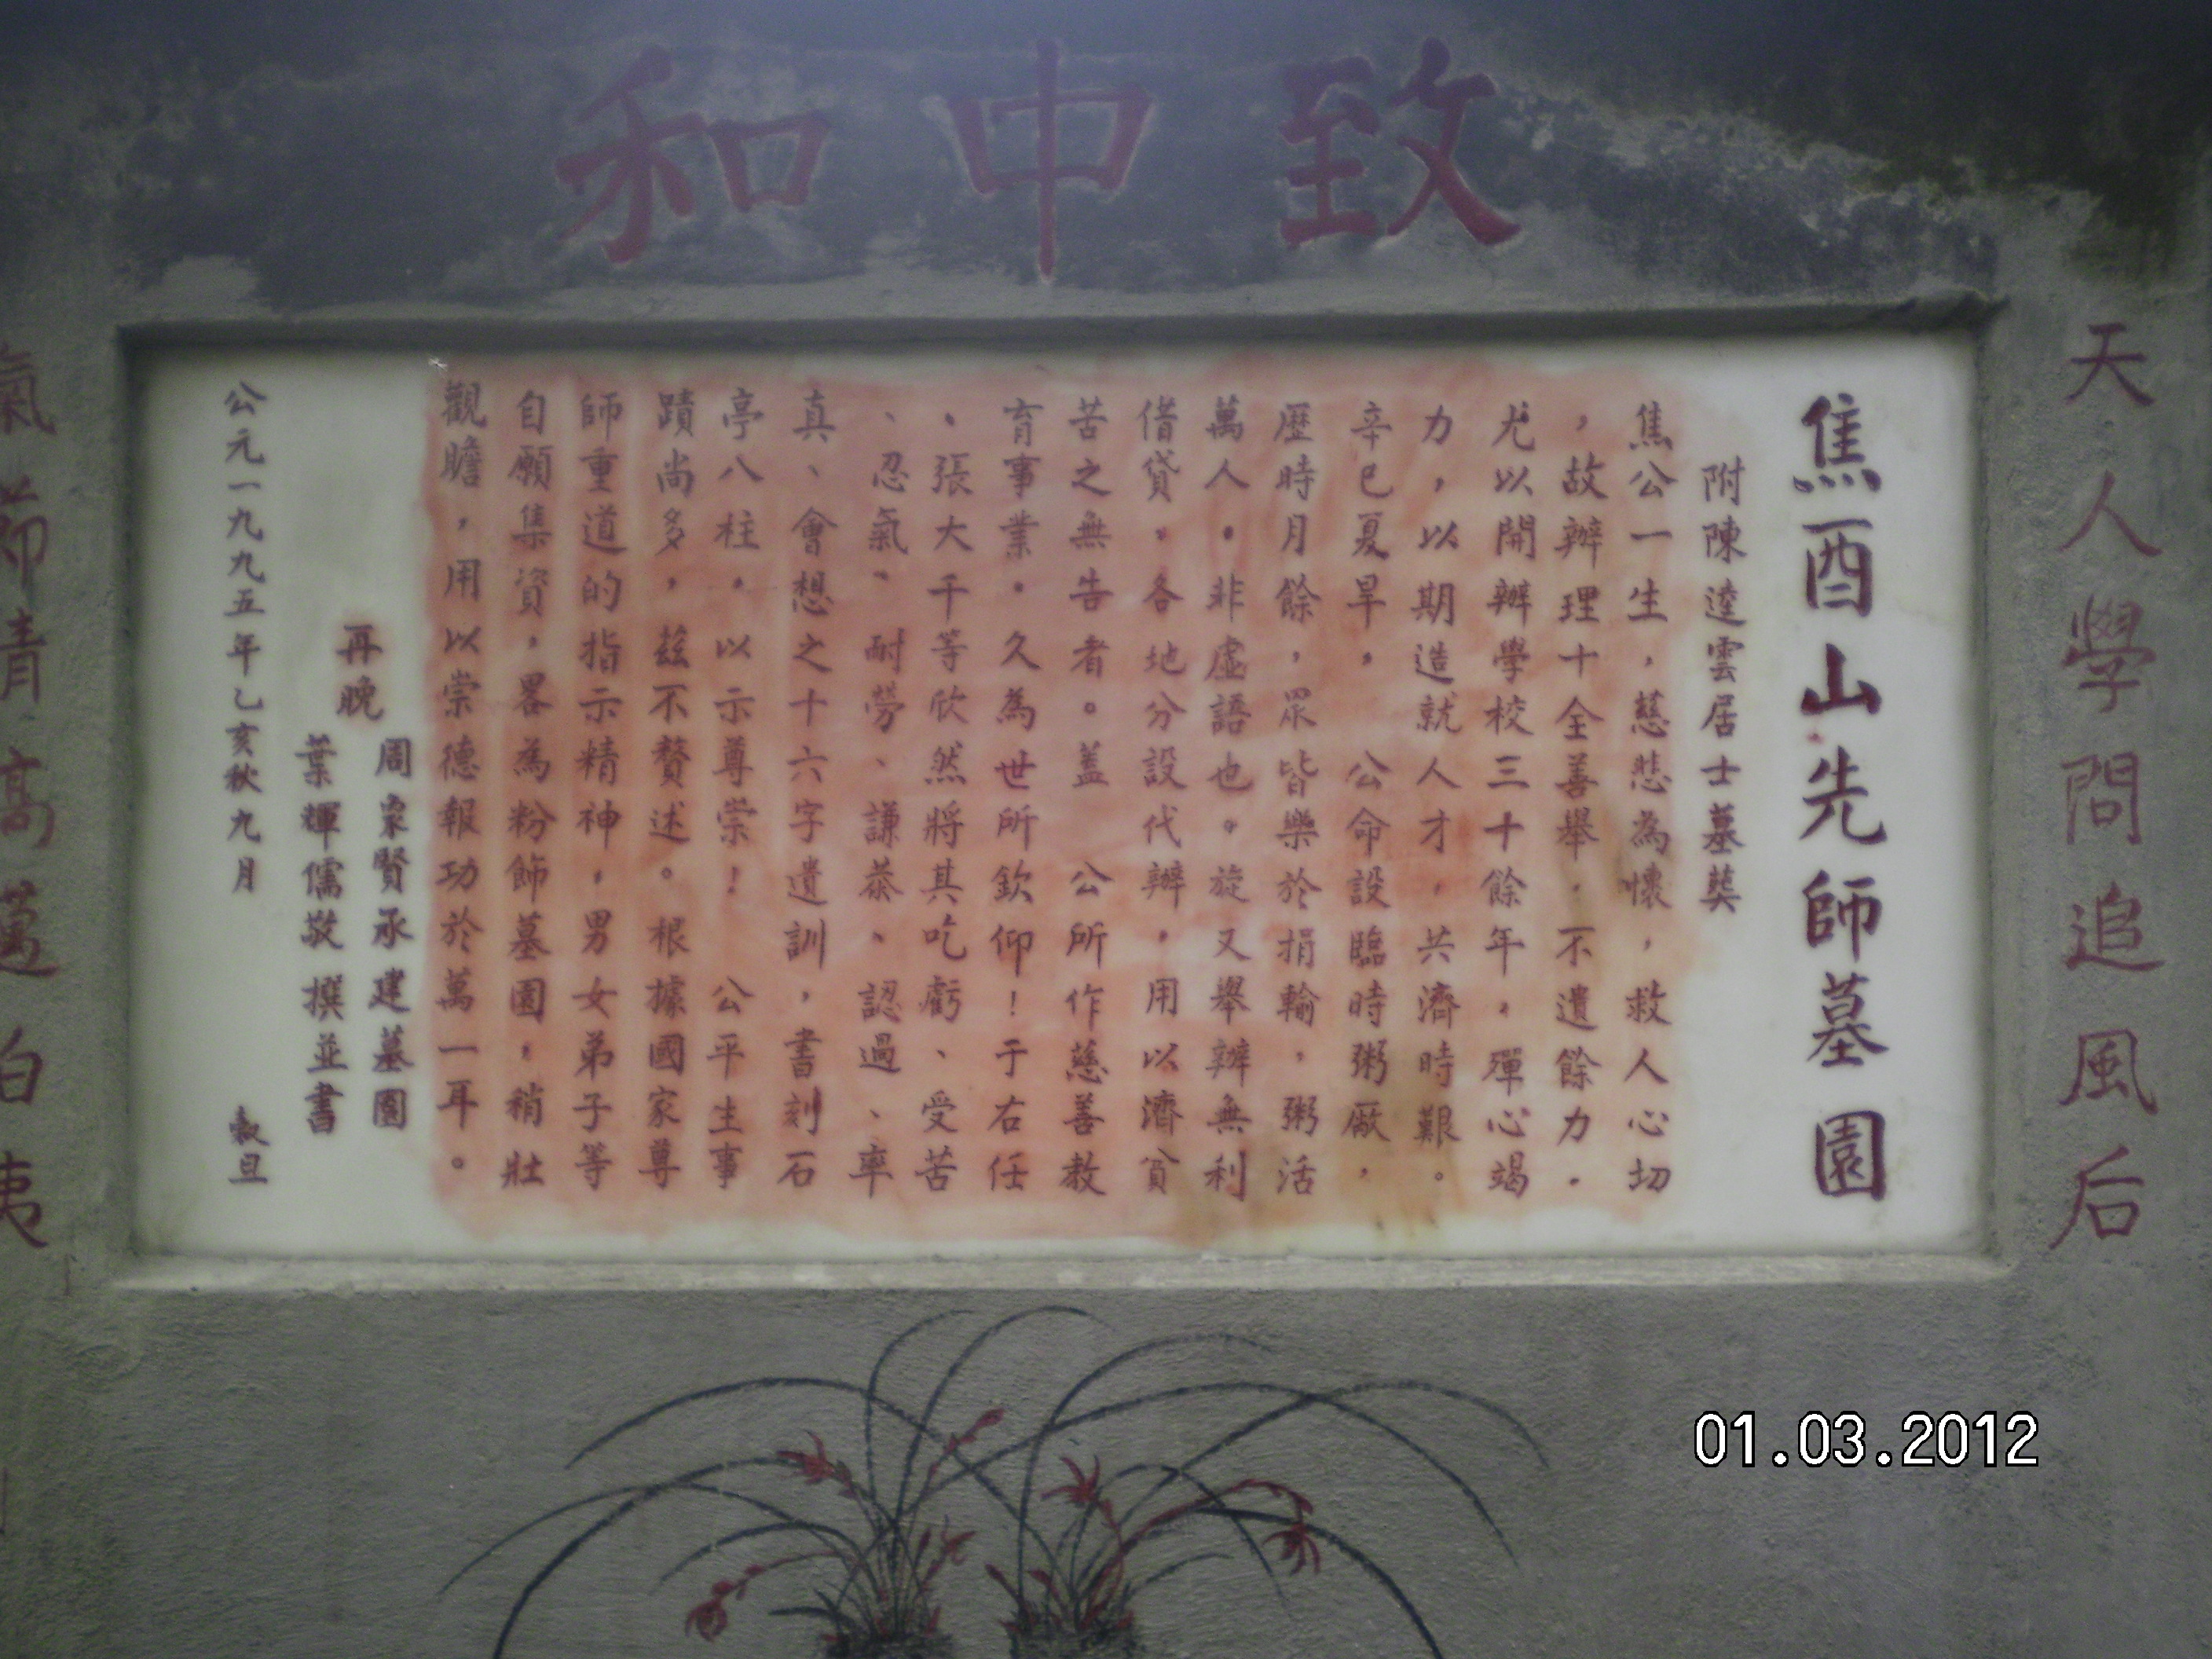 致中和
天人學問追風后
焦酉山先師墓園
附陳逵雲居士墓葬
焦公一生，慈悲為懷，救人心切
，故辦理十全善舉，不遺餘力．
尤以開辦學校三十餘年，殫心竭
力，以期造就人才，共濟時艱。
辛巳夏旱，　公命設臨時粥厰，
歷時月餘，眾皆樂於捐輸，粥活
萬人．非虛語也。旋又舉辦無利
借貸，各地分設代辦，用以濟貧
苦之無告者。蓋　公所作慈善教
育事業．久為世所欽仰！于右任
、張大千等欣然將其吃虧、受苦
、忍氣、耐勞、謙恭、認過、率
真、會想之十六字遺訓，書刻石
亭八柱，以示尊崇！　公平生事
蹟尚多，茲不贅述。根據國家尊
師重道的指示精神，男女弟子等
自願集資，畧為粉飾墓園，稍壯
觀瞻，用以崇德報功於萬一耳。
再晚
周宗賢承建墓園
葉輝儒敬撰並書
公元一九九五年乙亥秋九月　榖旦
氣節清高邁伯夷
01.03.2012